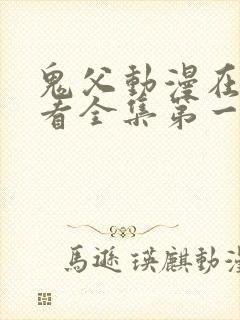 鬼父動漫在
看全集第一
馬遜瑛麒動漫